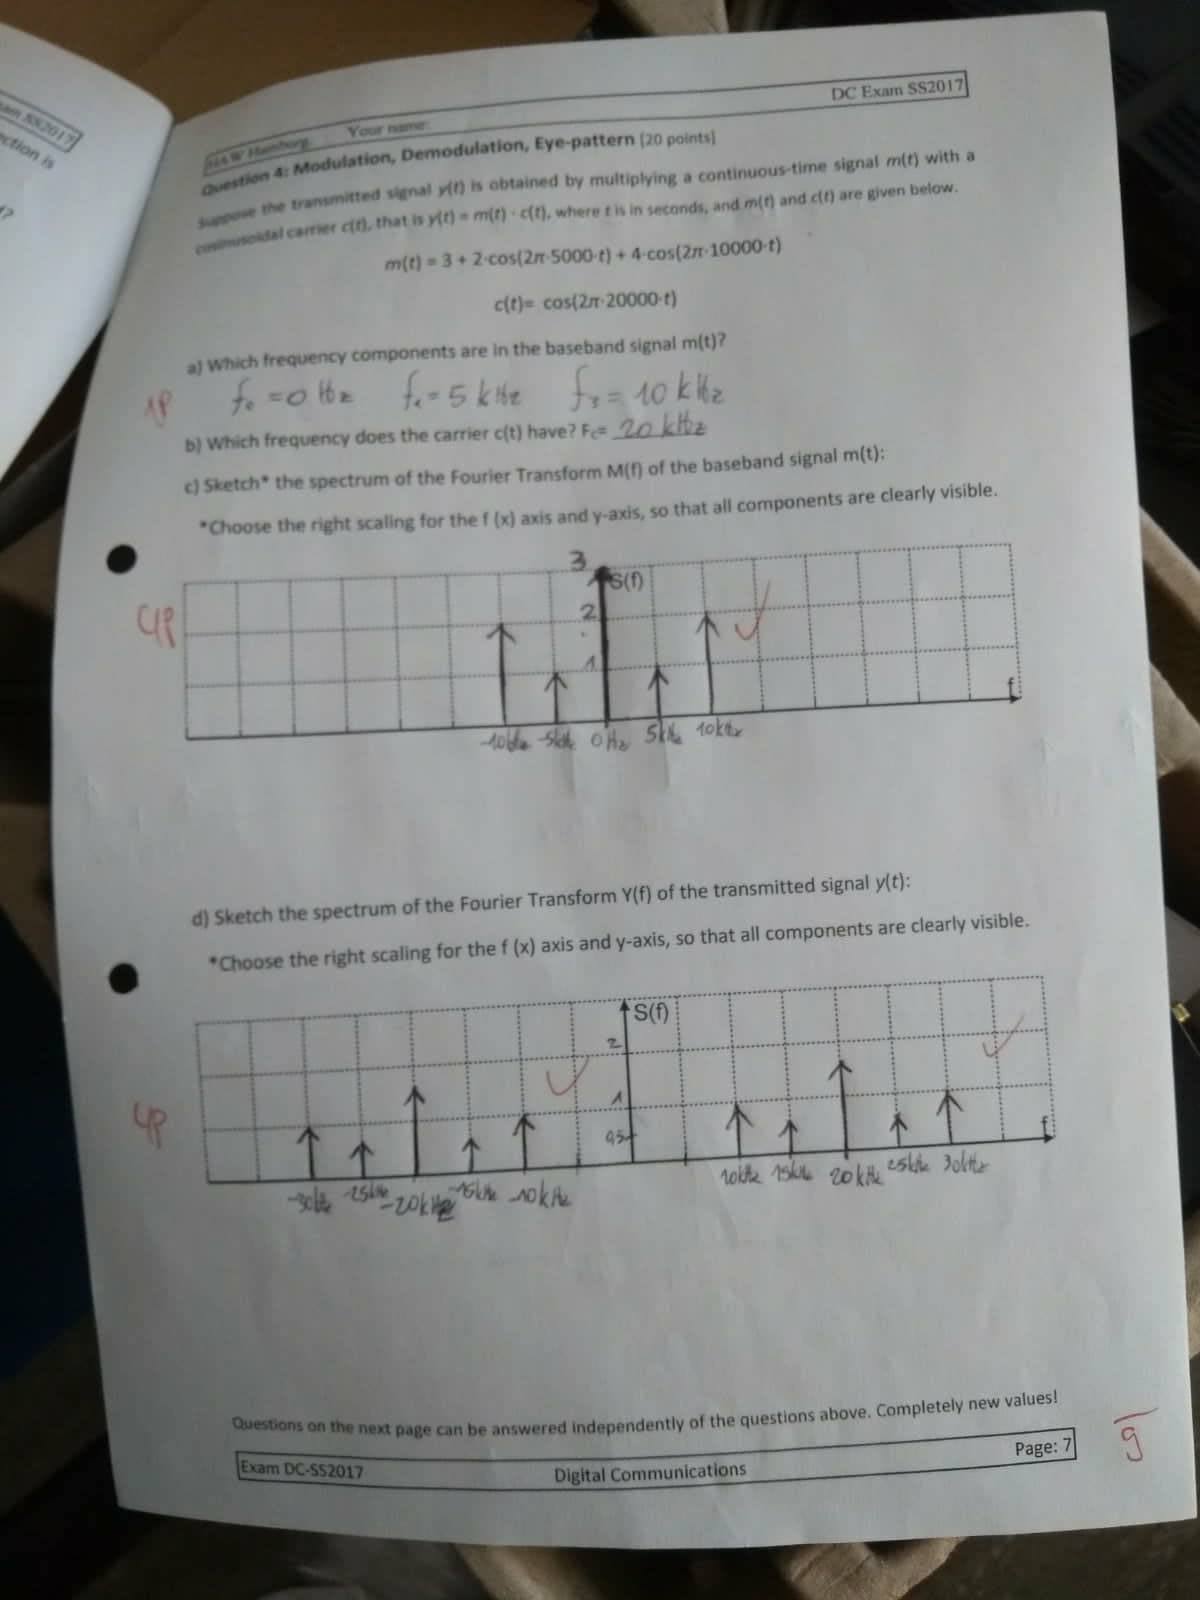 am SS2017
ction is
?
DC Exam SS2017
HAW Hamburg Your name:
Question 4: Modulation, Demodulation, Eye-pattern [20 points]
Suppose the transmitted signal y(t) is obtained by multiplying a continuous-time signal m(t) with a
cosinusoidal carrier c(t), that is y(t) = m(t) · c(t), where t is in seconds, and m(t) and c(t) are given below.
m(t) = 3 + 2·cos(2π·5000·t) + 4·cos(2π·10000·t)
c(t)= cos(2π·20000·t)
a) Which frequency components are in the baseband signal m(t)?
1P = 0 Hz = 5 kHz f3 = 10 kHz
b) Which frequency does the carrier c(t) have? Fc= 20 kHz
c) Sketch* the spectrum of the Fourier Transform M(f) of the baseband signal m(t):
*Choose the right scaling for the f (x) axis and y-axis, so that all components are clearly visible.
3
S(f)
4P
2
1
f
-10kHz -5kHz 0Hz 5kHz 10kHz
d) Sketch the spectrum of the Fourier Transform Y(f) of the transmitted signal y(t):
*Choose the right scaling for the f (x) axis and y-axis, so that all components are clearly visible.
S(f)
2
1
4P
0.5
f
-30kHz -25kHz -20kHz -15kHz -10kHz 10kHz 15kHz 20kHz 25kHz 30kHz
Questions on the next page can be answered independently of the questions above. Completely new values!
9
Exam DC-SS2017 Digital Communications Page: 7